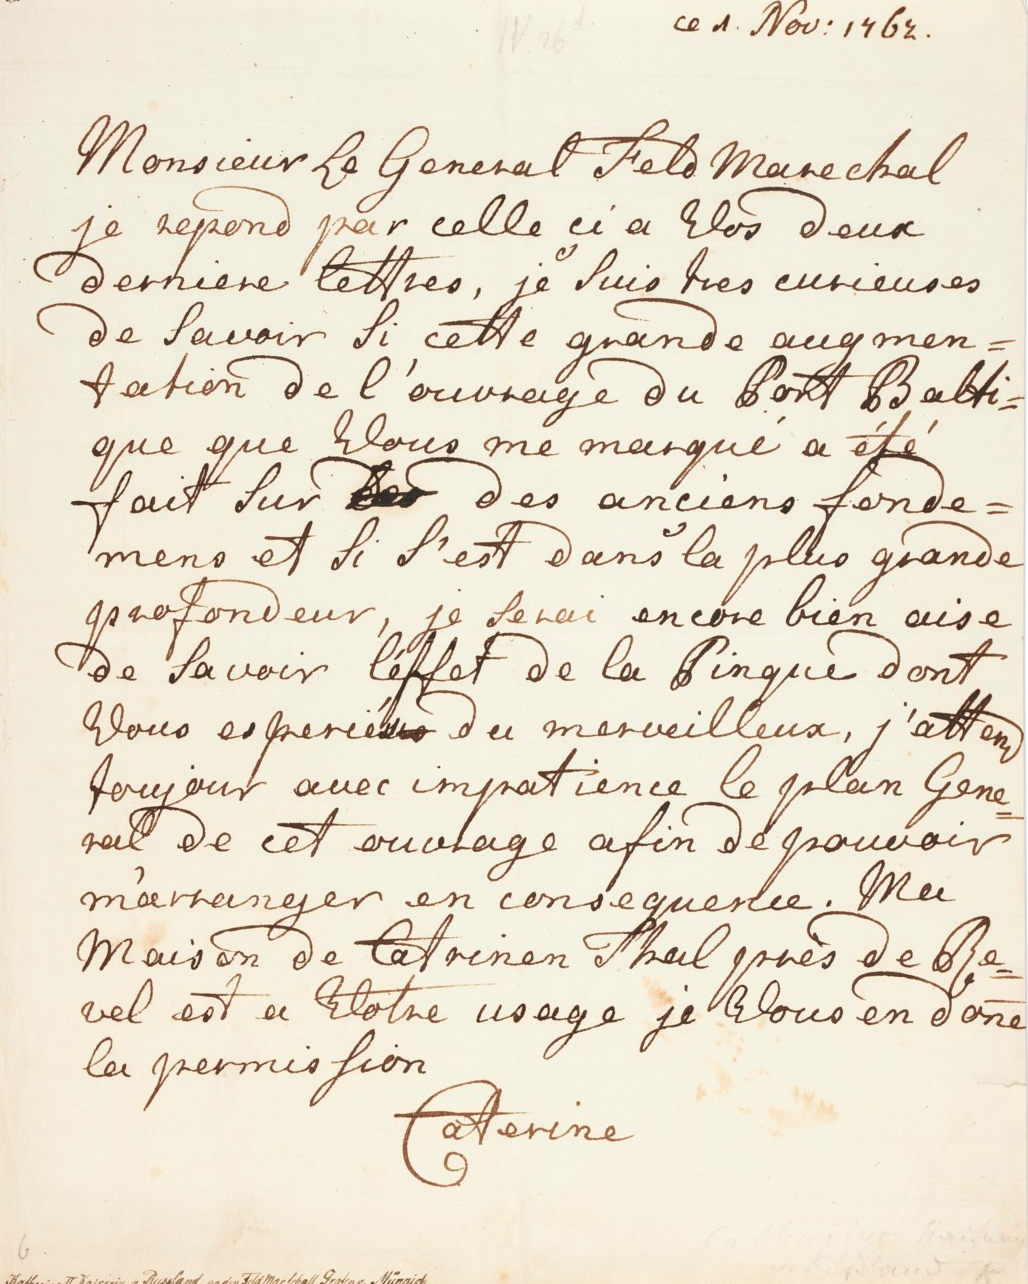 ce 1. Nov: 1762.
Monsieur Le General Feld Marechal
je repond par celle ci a Vos deux
derniere lettres, je suis tres curieuses
de savoir si cette grande augmen=
tation de l'ouvrage du Port Balti=
que que Vous me marqué a été
fait sur des anciens fonde=
mens et si s'est dans la plus grande
profondeur, je serai encore bien aise
de savoir l'éffet de la Pinque dont
Vous esperiés du merveilleux, j'attend
toujour avec impatience le plan Gene=
ral de cet ouvrage afin de pouvoir
m'arranger en consequence. Ma
Maison de Catrinen Thal près de Re=
vel est a Votre usage je Vous en done
la permission
Caterine
6.
Russland Feld Marschall Münnich